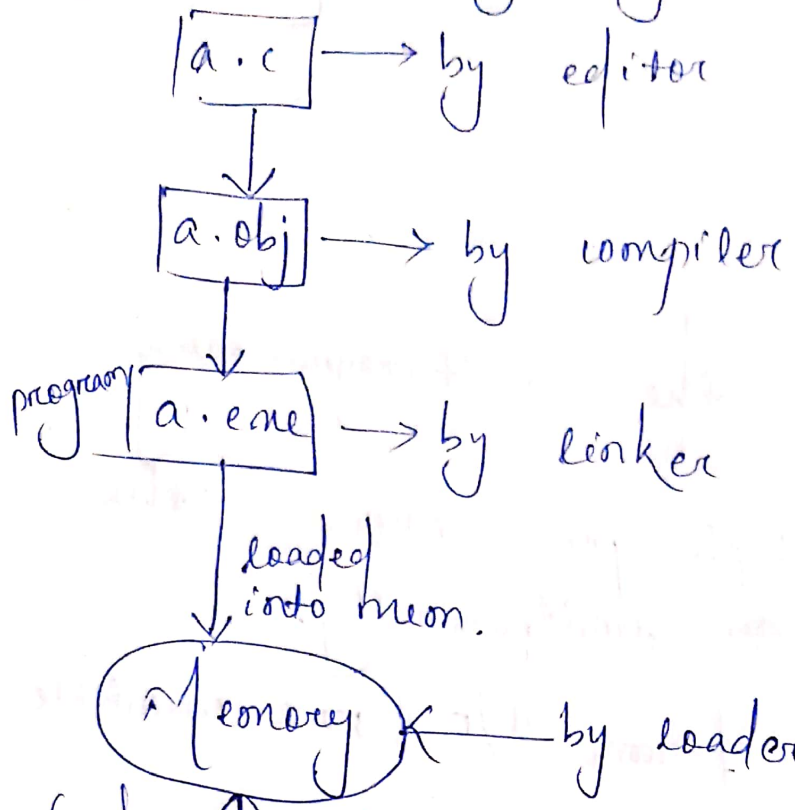 a.c → by editor
a.obj → by compiler
program a.exe → by linker
loaded
into mem.
Memory ← by loader